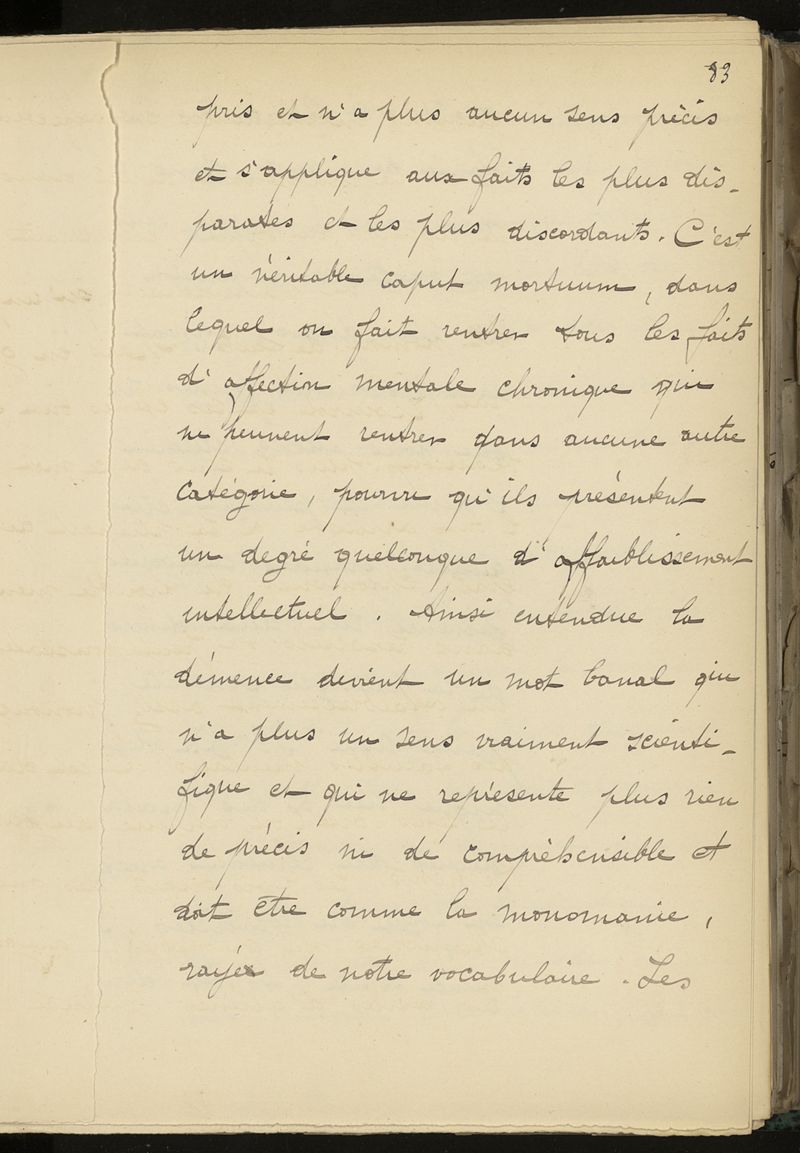 83
pris et n'a plus aucun sens précis
et s'applique aux faits les plus dis-
parates et les plus discordants. C'est
un véritable caput mortuum, dans
lequel on fait rentrer tous les faits
d'affection mentale chronique qui
ne peuvent rentrer dans aucune autre
catégorie, pourvu qu'ils présentent
un degré quelconque d'affaiblissement
intellectuel. Ainsi entendue la
démence devient un mot banal qui
n'a plus un sens vraiment scienti-
fique et qui ne représente plus rien
de précis ni de compréhensible et
doit etre comme la monomanie,
rayée de notre vocabulaire. Les